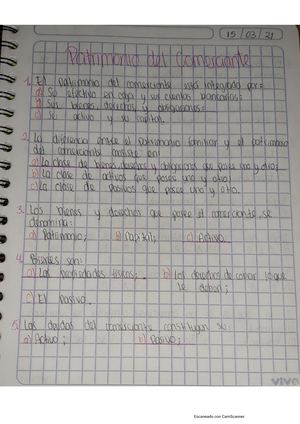 15 / 03 / 21
Patrimonio del Comerciante
1. El patrimonio del comerciante está integrado por:
a) Su efectivo en caja y sus cuentas bancarias;
b) Sus bienes, derechos y obligaciones;
c) Su activo y su capital.
2. La diferencia entre el patrimonio familiar y el patrimonio
del comerciante consiste en:
a) La clase de bienes, derechos y obligaciones que posee uno y otro;
b) La clase de activos que posee uno y otro.
c) La clase de pasivos que posee uno y otro.
3. Los bienes y derechos que posee el comerciante, se
denomina:
a) Patrimonio; b) Capital; c) Activo
4. Bienes son:
a) Las propiedades físicas; b) los derechos de cobrar lo que
le deban;
c) El Pasivo.
5. Las deudas del comerciante constituyen su:
a) Activo; b) Pasivo;
vivo
Escaneado con CamScanner